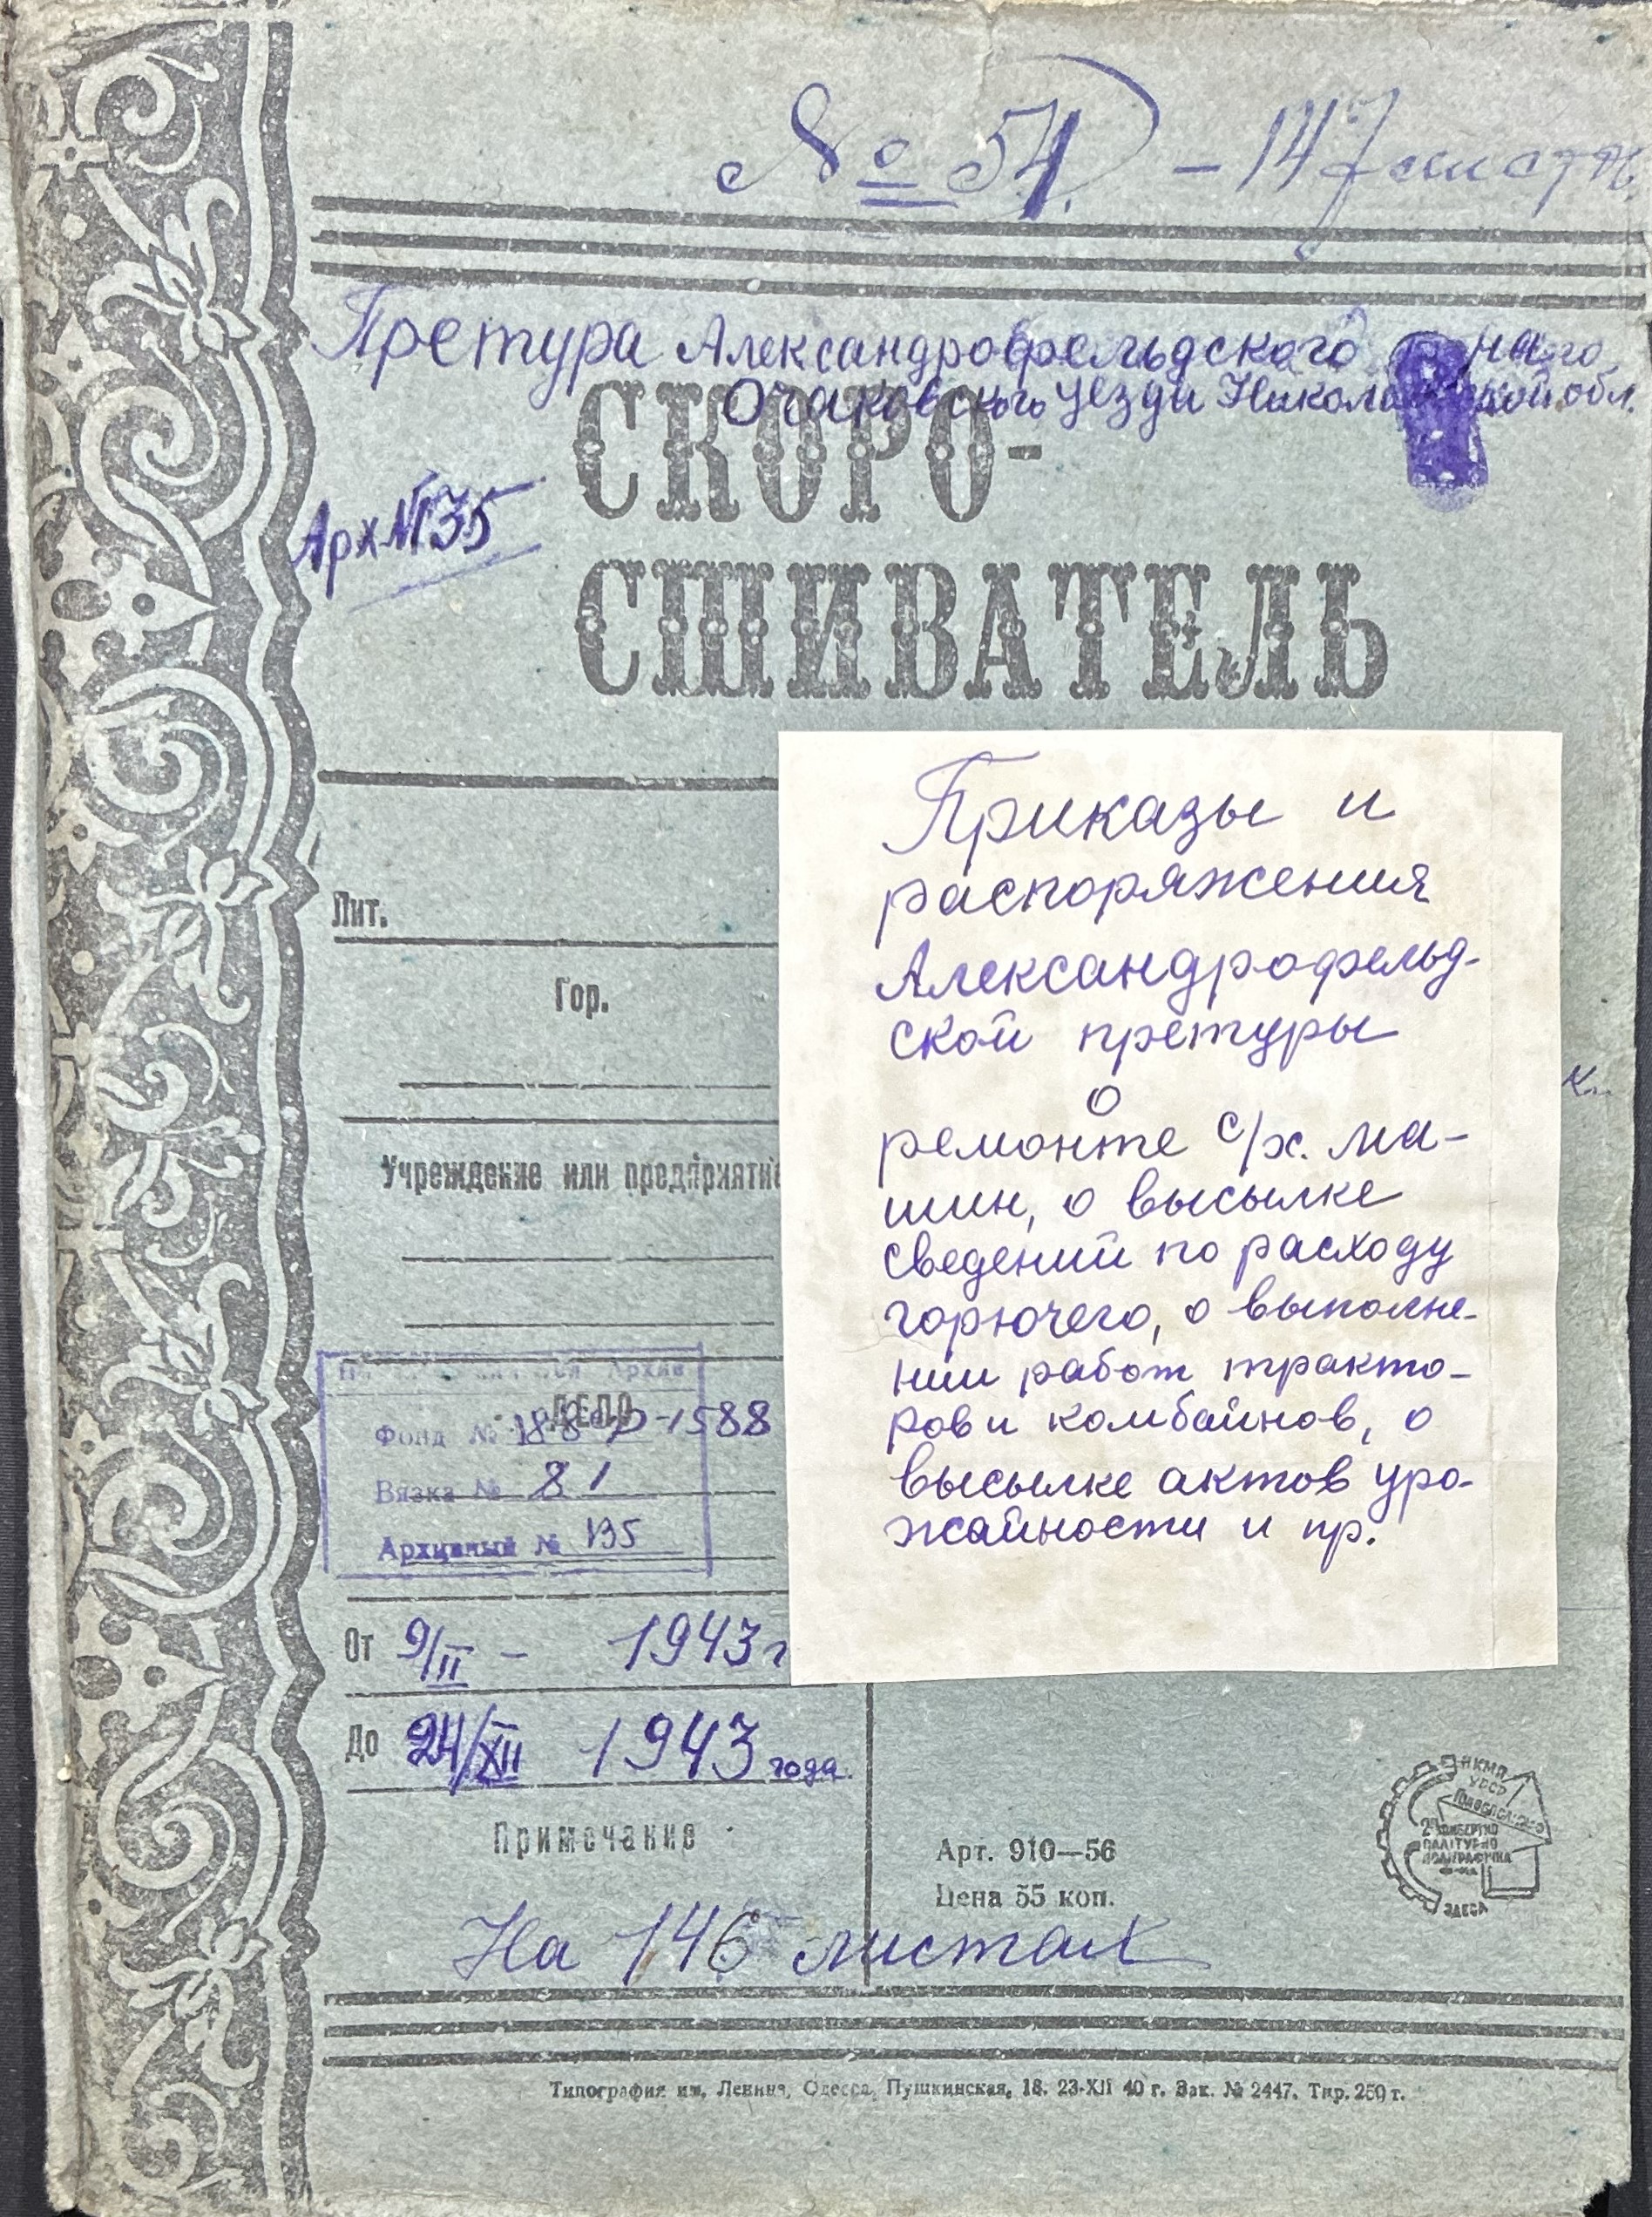 № 51. - 147 листа.
Претура Александрофельдского р-на
Очаковского уезда Николаевской обл.
СКОРО-
СШИВАТЕЛЬ
Арх № 135
Приказы и
распоряжения
Александрофельд-
ской претуры
о
ремонте с/х. ма-
шин, о высылке
сведений по расходу
горючего, о выполне-
нии работ тракто-
ров и комбайнов, о
высылке актов уро-
жайности и пр.
Лит.
Гор.
Учреждение или предприятие
Архив
ДЕЛО
Фонд № Р-1588
Вязка № 81
Архивный № 135
От 9/II - 1943 г
До 24/XII 1943 года.
Примечание
На 146 листах
Арт. 910—56
Цена 55 коп.
НКМП
УРСР
ОДЕСА
Типография им. Ленина, Одесса, Пушкинская, 18. 23-XII 40 г. Зак. № 2447. Тир. 250 т.